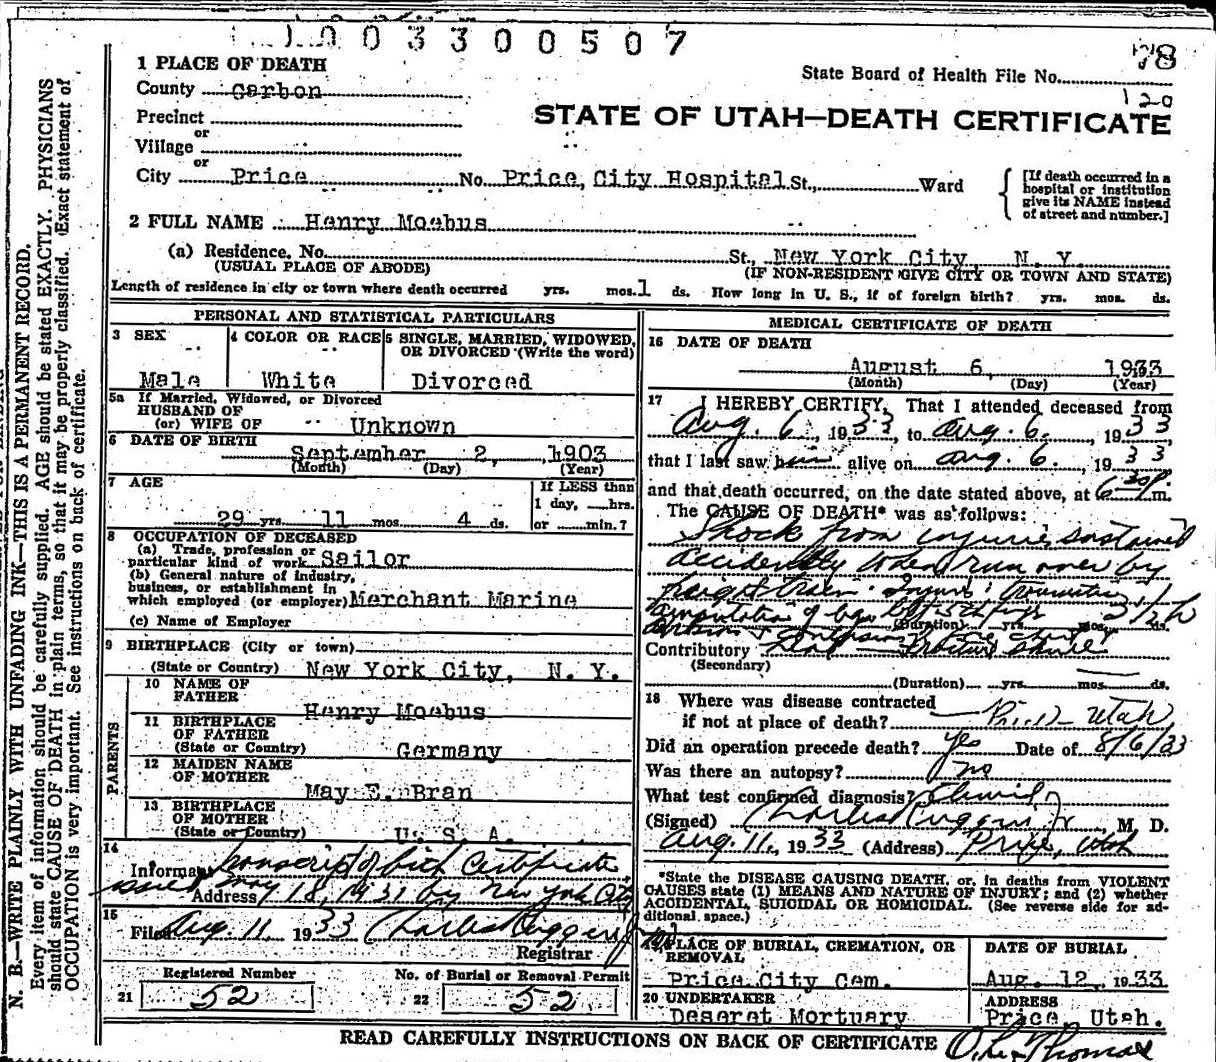 003300507
78
State Board of Health File No.
120
STATE OF UTAH—DEATH CERTIFICATE
1 PLACE OF DEATH
County Carbon
Precinct
or
Village
or
City Price No. Price, City Hospital St., Ward
[If death occurred in a
hospital or institution
give its NAME instead
of street and number.]
2 FULL NAME Henry Moebus
(a) Residence. No. St., New York City, N. Y.
(USUAL PLACE OF ABODE) (IF NON-RESIDENT GIVE CITY OR TOWN AND STATE)
Length of residence in city or town where death occurred yrs. mos. 1 ds. How long in U. S., if of foreign birth? yrs. mos. ds.
PERSONAL AND STATISTICAL PARTICULARS
3 SEX
Male
4 COLOR OR RACE
White
5 SINGLE, MARRIED, WIDOWED,
OR DIVORCED (Write the word)
Divorced
5a If Married, Widowed, or Divorced
HUSBAND OF
(or) WIFE OF Unknown
6 DATE OF BIRTH
September 2, 1903
(Month) (Day) (Year)
7 AGE
29 yrs. 11 mos. 4 ds.
If LESS than
1 day, hrs.
or min.?
8 OCCUPATION OF DECEASED
(a) Trade, profession or
particular kind of work Sailor
(b) General nature of industry,
business, or establishment in
which employed (or employer) Merchant Marine
(c) Name of Employer
9 BIRTHPLACE (City or town)
(State or Country) New York City, N. Y.
PARENTS
10 NAME OF
FATHER
Henry Moebus
11 BIRTHPLACE
OF FATHER
(State or Country) Germany
12 MAIDEN NAME
OF MOTHER
May E. Bran
13 BIRTHPLACE
OF MOTHER
(State or Country) U. S. A.
14
Informant transcript of birth Certificate
issued May 18, 1931 by New York City
Address
15
Filed Aug. 11, 1933 Charles Ruggeri Jr
Registrar
Registered Number
21 52
No. of Burial or Removal Permit
22 52
MEDICAL CERTIFICATE OF DEATH
16 DATE OF DEATH
August 6, 1933
(Month) (Day) (Year)
17 I HEREBY CERTIFY, That I attended deceased from
Aug. 6, 1933, to Aug. 6, 1933,
that I last saw him alive on Aug. 6, 1933
and that death occurred, on the date stated above, at 6:30 P. m.
The CAUSE OF DEATH* was as follows:
Shock from injuries sustained
accidently when run over by
freight train. Injuries: traumatic
amputation of
(Duration) yrs. mos. ds.
Contributory
(Secondary)
(Duration) yrs. mos. ds.
18 Where was disease contracted
if not at place of death? Price - Utah
Did an operation precede death? yes Date of 8/6/33
Was there an autopsy? no
What test confirmed diagnosis? Clinical
(Signed) Charles Ruggeri Jr, M. D.
Aug. 11, 1933 (Address) Price, Utah
*State the DISEASE CAUSING DEATH, or, in deaths from VIOLENT
CAUSES state (1) MEANS AND NATURE OF INJURY; and (2) whether
ACCIDENTAL, SUICIDAL OR HOMICIDAL. (See reverse side for ad-
ditional space.)
19 PLACE OF BURIAL, CREMATION, OR
REMOVAL
Price City Cem.
DATE OF BURIAL
Aug. 12, 1933
20 UNDERTAKER
Deseret Mortuary
ADDRESS
Price, Utah.
READ CAREFULLY INSTRUCTIONS ON BACK OF CERTIFICATE
N. B.—WRITE PLAINLY WITH UNFADING INK—THIS IS A PERMANENT RECORD.
Every item of information should be carefully supplied. AGE should be stated EXACTLY. PHYSICIANS
should state CAUSE OF DEATH in plain terms, so that it may be properly classified. Exact statement of
OCCUPATION is very important. See instructions on back of certificate.